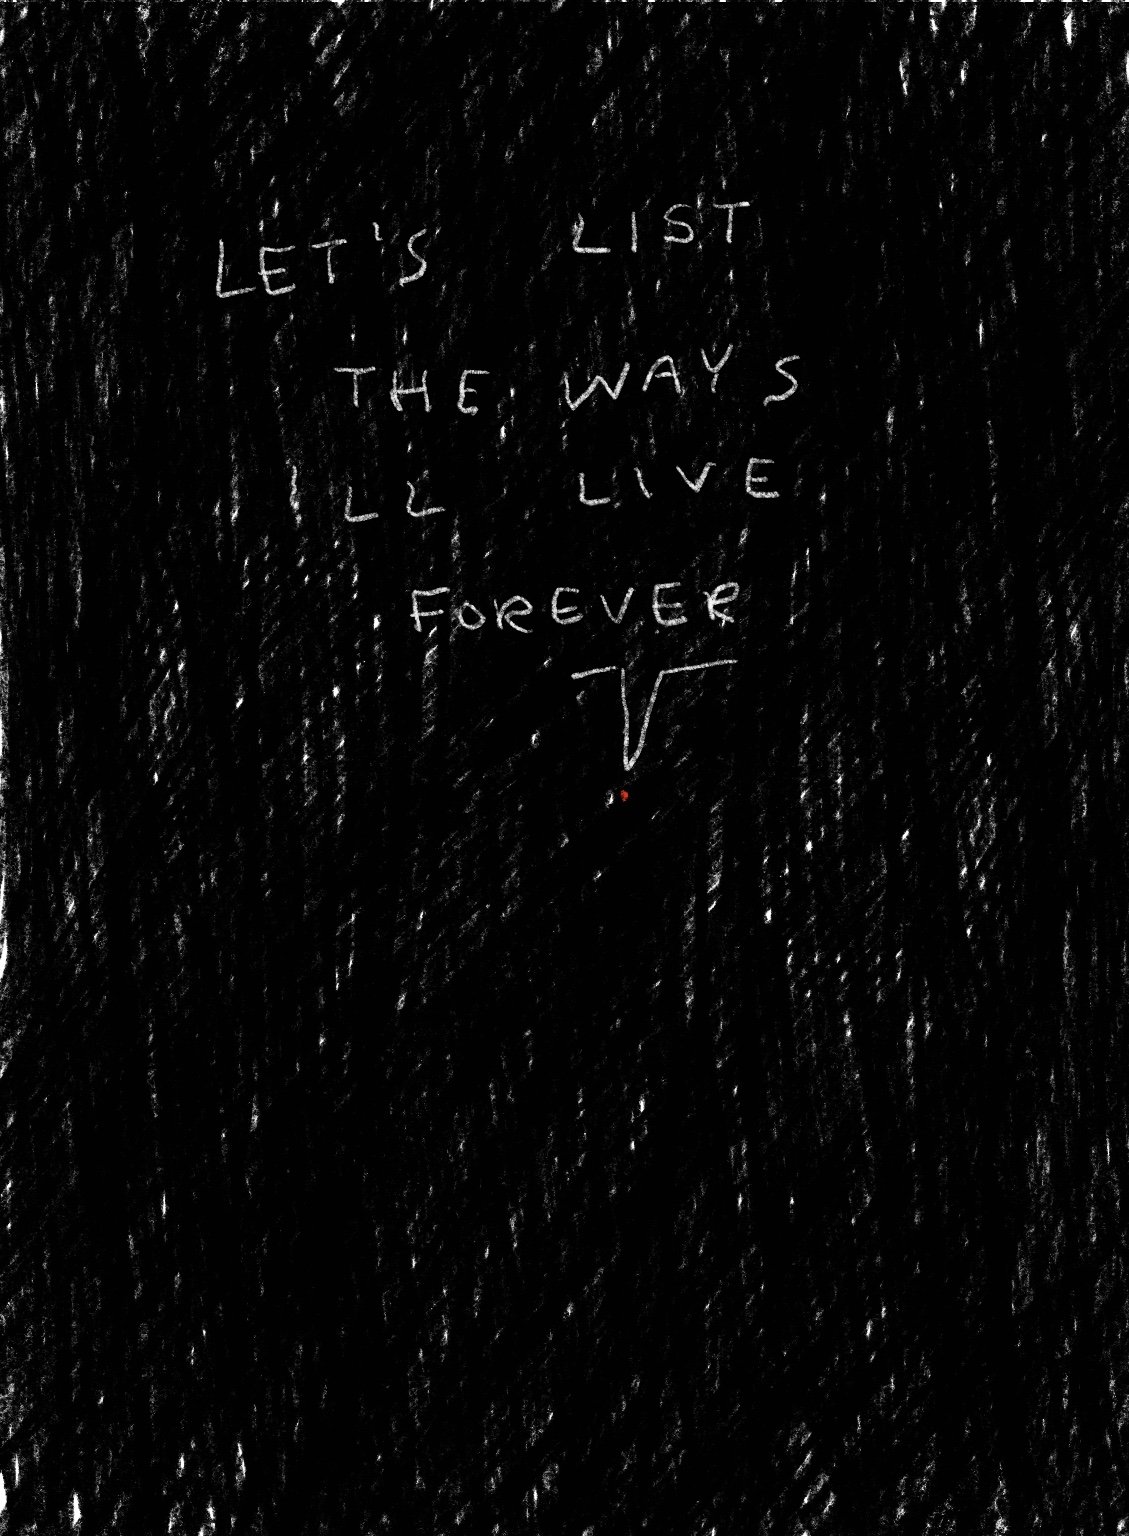 LET'S LIST
THE WAYS
I LL LIVE
FOREVER